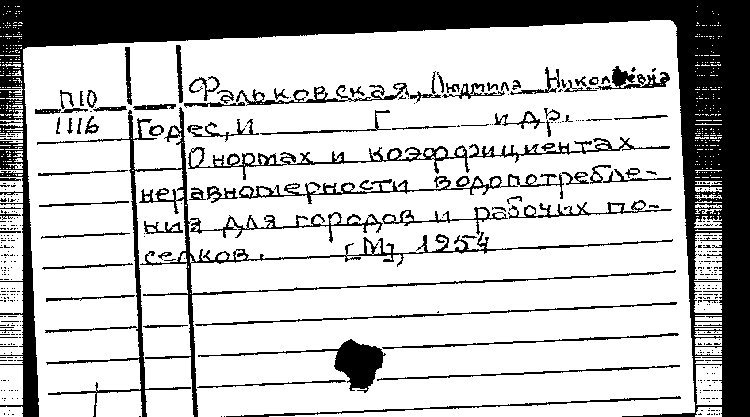 П10 Фальковская, Людмила Николаевна
1116 Годес, И Г и др.
О нормах и коэффициентах
неравномерности водопотребле-
ния для городов и рабочих по-
селков. [М], 1954